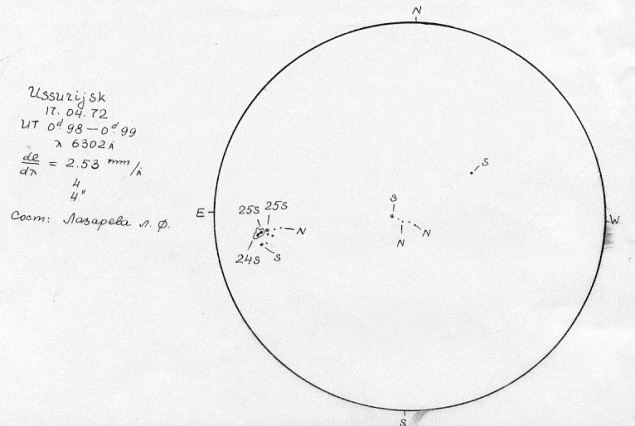 N
Ussurijsk
17. 04. 72
UT 0ᵈ 98 — 0ᵈ. 99
λ 6302 Å
de/dλ = 2.53 mm/Å
4
4"
Сост: Лазарева Л. Ф.
S
S
E
W
25S 25S
N
N
N
24S
S
S